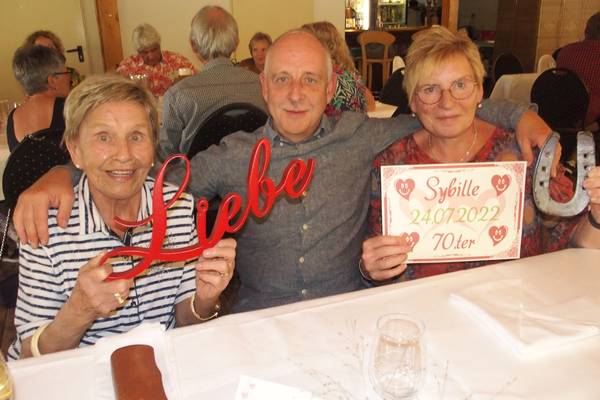 Liebe
Sybille
24.07.2022
70.ter